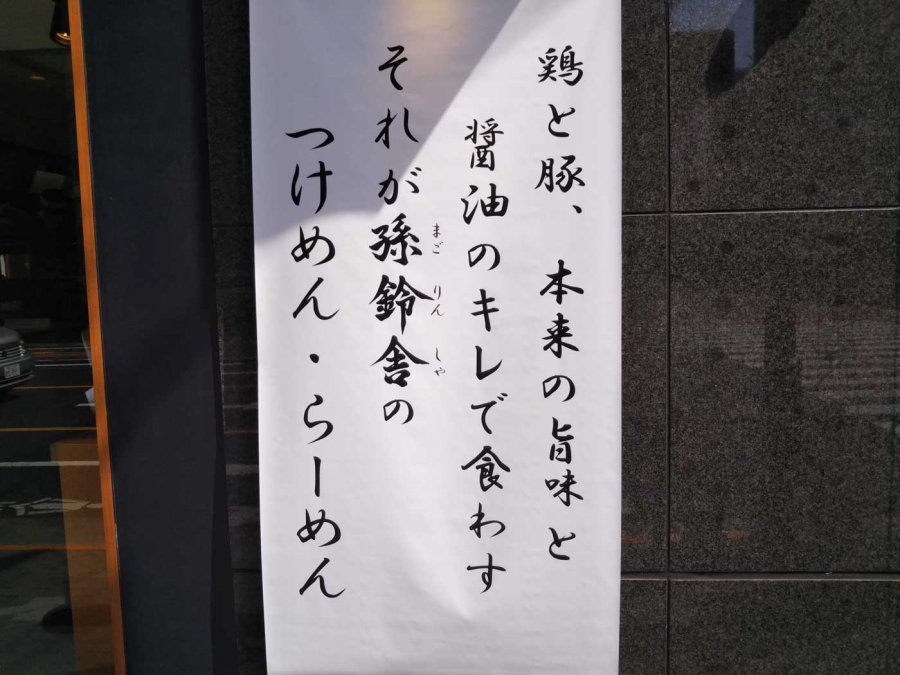 鶏と豚、本来の旨味と
醤油のキレで食わす
それが孫鈴舎の
まごりんしゃ
つけめん・らーめん